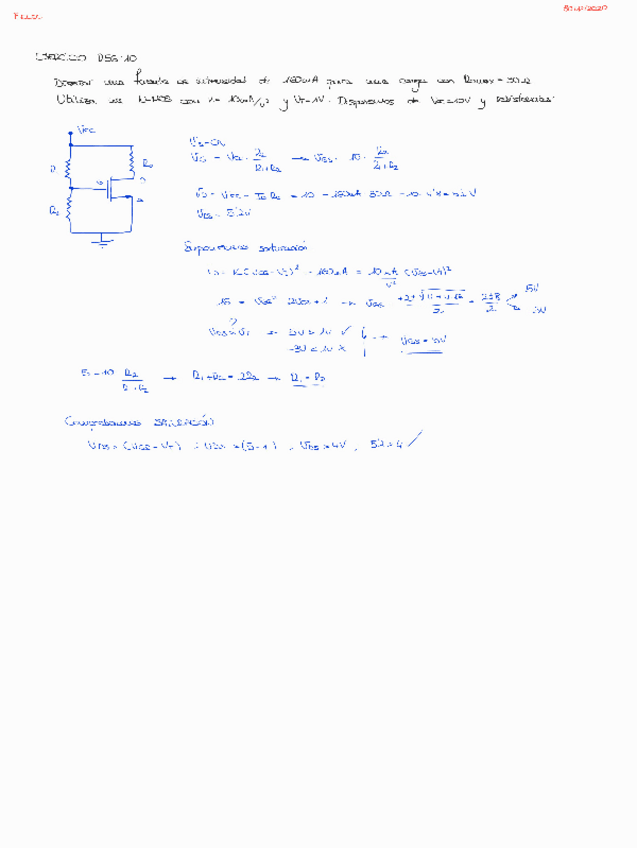 30/11/2020
EJERCICIO DSG.10
Diseñar una fuente de intensidad de 160mA para una carga con Rmax = 30Ω
Utilizar un N-MOS con K= 10mA/V² y VT=1V. Disponemos de Vcc=10V y resistencias
Vcc
R2
VS=0V
VG = Vcc · R2 / R1+R2 → VGS = 10 · R2 / R1+R2
VD = Vcc - ID RL = 10 - 160mA 30Ω = 10 - 4'8 = 5'2 V
VDS = 5'2V
Suponemos saturación
ID = K(VGS-VT)² → 160mA = 10 mA/V² (VGS-1)²
16 = VGS² - 2VGS + 1 → VGS
5V
-3V
VGS > VT → 5V > 1V ✓
-3V < 1V ✗
→ VGS = 5V
5 = 10 R2 / R1+R2 → R1+R2 = 2R2 → R1 = R2
Comprobamos SATURACIÓN
VDS > (VGS - VT) ; VDS > (5-1) ; VDS > 4V ; 5'2 > 4 ✓